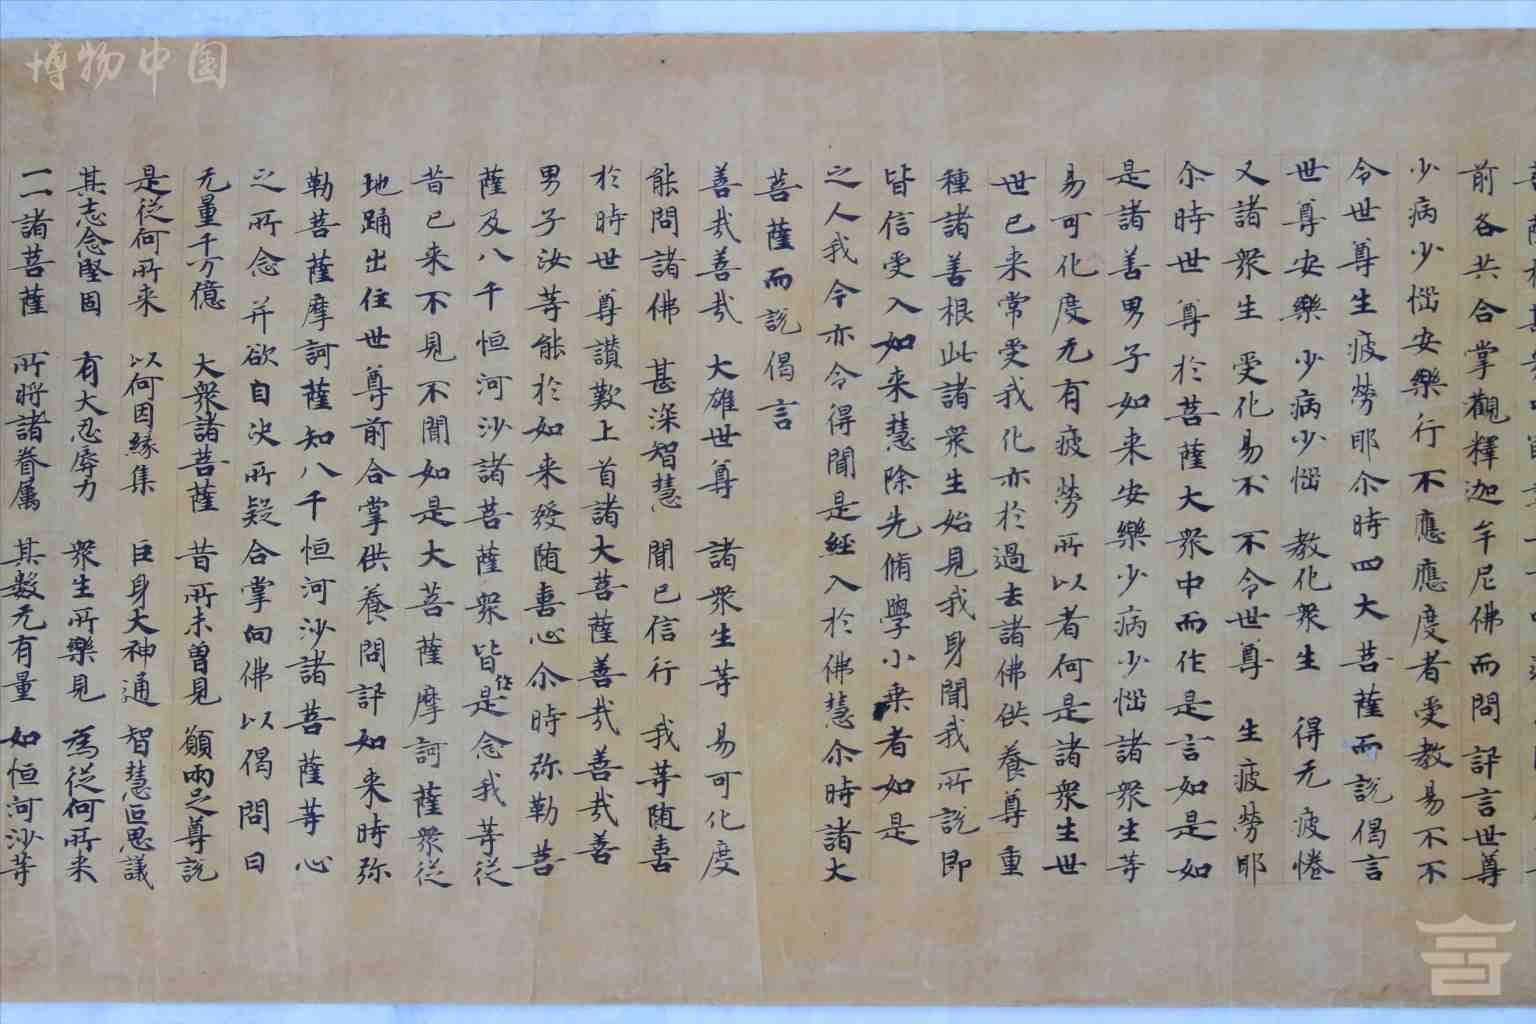 博物中国
前各共合掌觀釋迦牟尼佛而問訊言世尊
少病少惱安樂行不應應度者受教易不不
令世尊生疲勞耶尒時四大菩薩而說偈言
世尊安樂 少病少惱 教化眾生 得无疲惓
又諸眾生 受化易不 不令世尊 生疲勞耶
尒時世尊於菩薩大眾中而作是言如是如
是諸善男子如来安樂少病少惱諸眾生等
易可化度无有疲勞所以者何是諸眾生世
世已来常受我化亦於過去諸佛供養尊重
種諸善根此諸眾生始見我身聞我所說即
皆信受入如来慧除先脩學小乗者如是
之人我今亦令得聞是經入於佛慧尒時諸大
菩薩而說偈言
善哉善哉 大雄世尊 諸眾生等 易可化度
能問諸佛 甚深智慧 聞已信行 我等随喜
於時世尊讃歎上首諸大菩薩善哉善哉善
男子汝等能於如来發随喜心尒時弥勒菩
薩及八千恒河沙諸菩薩眾皆作是念我等従
昔已来不見不聞如是大菩薩摩訶薩眾従
地踊出住世尊前合掌供養問訊如来時弥
勒菩薩摩訶薩知八千恒河沙諸菩薩等心
之所念并欲自决所疑合掌向佛以偈問曰
无量千万億 大眾諸菩薩 昔所未曽見 願兩足尊說
是従何所来 以何因緣集 巨身大神通 智慧叵思議
其志念堅固 有大忍辱力 眾生所樂見 為従何所来
一一諸菩薩 所將諸眷屬 其數无有量 如恒河沙等